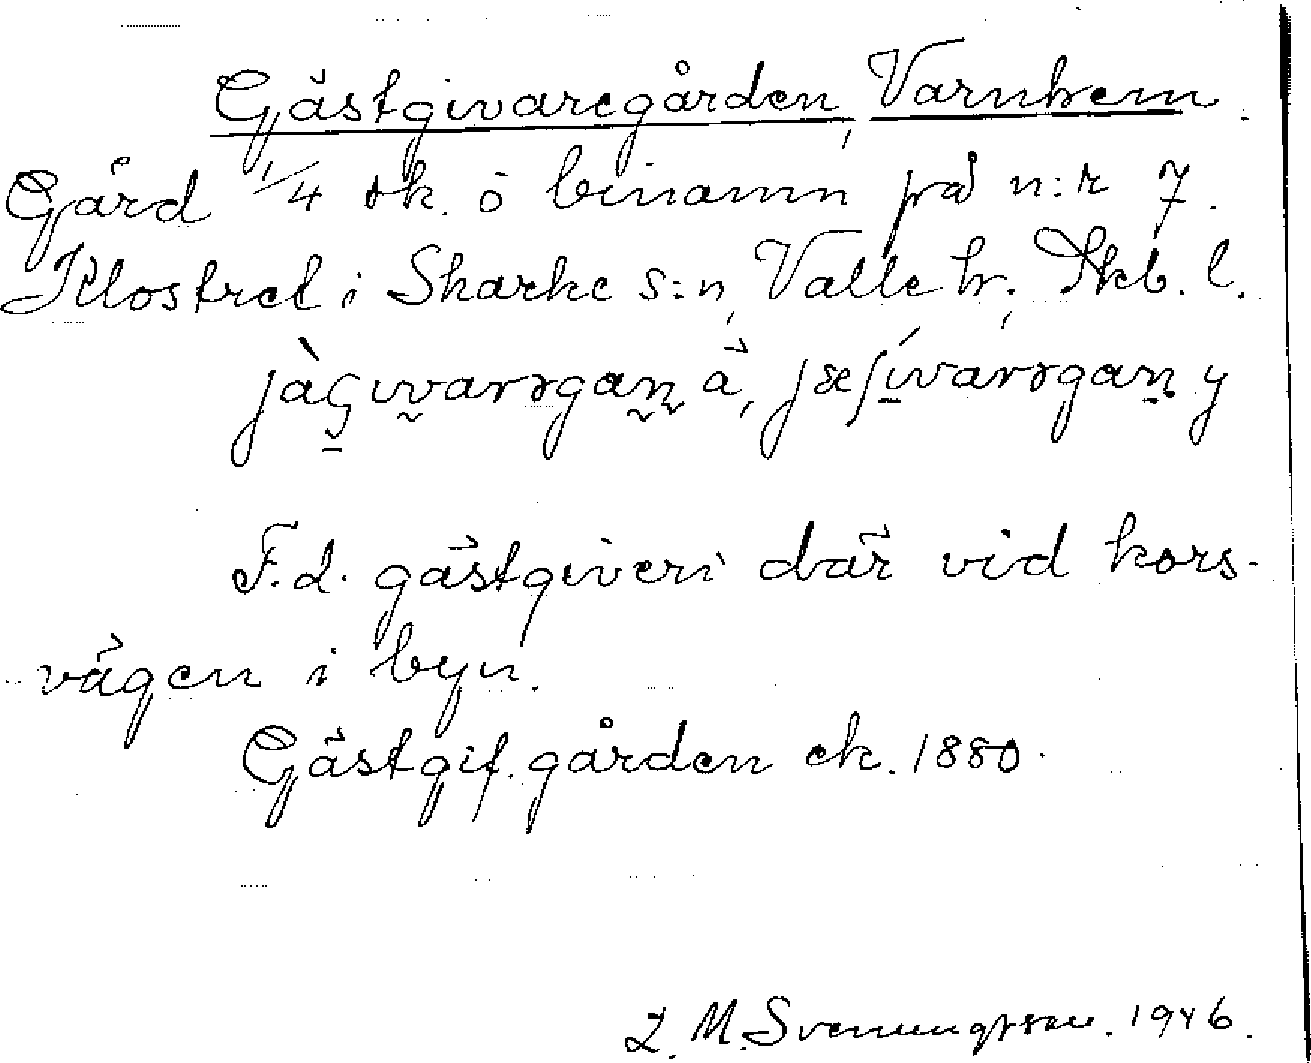 Gästgivaregården, Varnhem.
Gård 1/4 sk. o binamn på n:r 7.
Klostret i Skarke s:n, Valle hr, Skb. l.
F.d. gästgiveri där vid kors-
vägen i byn.
Gästgif. gården ek. 1880.
L. M. Svenungsson. 1946.